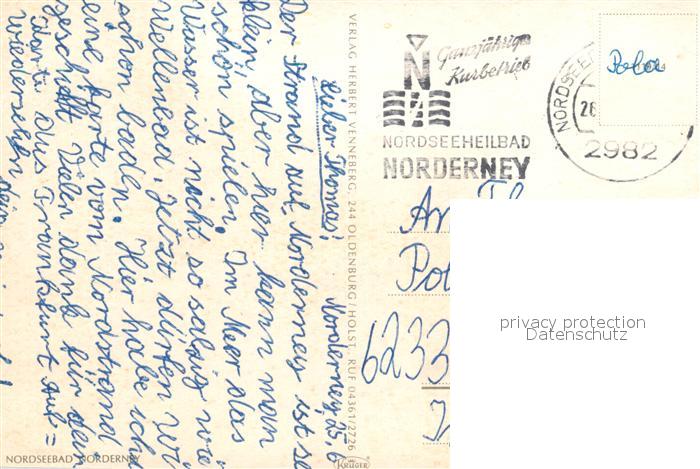 Norderney, 25.6
Lieber Thomas!
Der Strand auf Norderney ist se
klein, aber hier kann man
schön spielen. Im Meer das
Wasser ist nicht so salzig wie
Wellenbad. Jetzt dürfen wir
schon baden. Hier habe ich
eine Karte vom Nordstrand
geschickt. Vielen dank für dein
Karte aus Frankfurt. Auf =
wiedersehen
VERLAG HERBERT VENNEBERG, 244 OLDENBURG/HOLST., RUF 04361/2726
KRÜGER
NORDSEEBAD NORDERNEY
Ganzjähriger
Kurbetrieb
N
NORDSEEHEILBAD
NORDERNEY
NORDSEE
26
2982
An
6233
privacy protection
Datenschutz